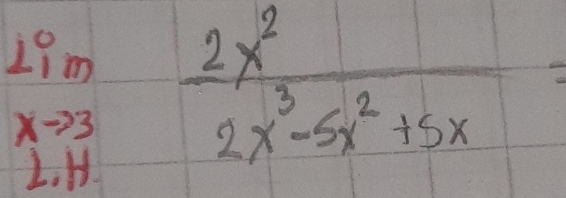 Lim 2x² =
x→3 2x³-5x²+5x
L.H.